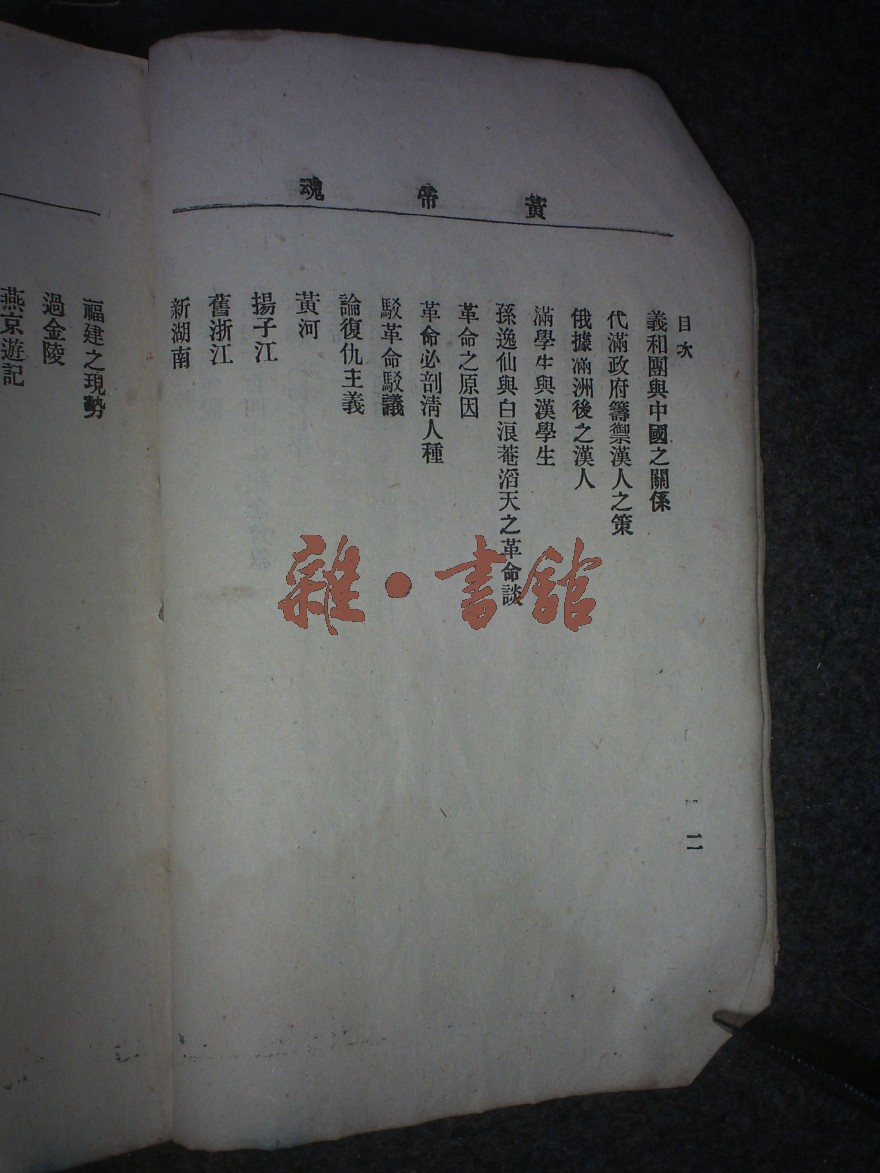 黃帝魂
目次
義和團與中國之關係
代滿政府籌禦漢人之策
俄據滿洲後之漢人
滿學生與漢學生
孫逸仙與白浪菴滔天之革命談
革命之原因
革命必剖淸人種
駁革命駁議
論復仇主義
黃河
揚子江
舊浙江
新湖南
二
福建之現勢
過金陵
燕京遊記
雜·書館